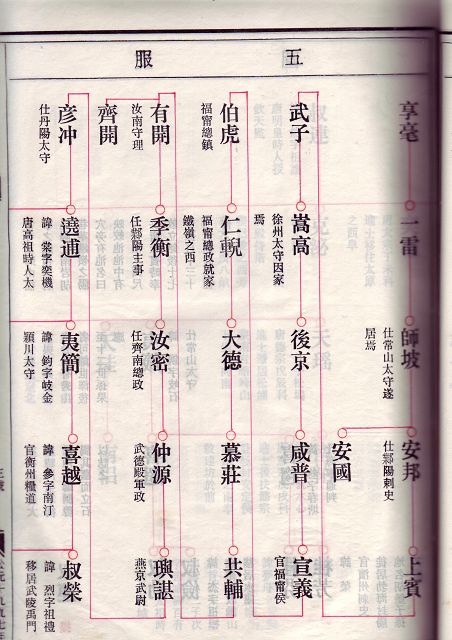 五服
享亳
一雷
師坡
仕常山太守遂
居焉
安邦
仕鄱陽刺史
上賓
安國
武子
嵩高
徐州太守因家
焉
後京
咸普
宣義
官福甯侯
伯虎
福甯總鎮
仁輗
福甯總政就家
鐵嶺之西
大德
慕莊
共輔
有開
汝南守理
季衡
任鄴陽主事
汝密
任齊南總政
仲源
武德殿軍政
璵諶
燕京武尉
齊開
彥冲
仕丹陽太守
遶逋
諱 棠字奕機
唐高祖時人太
夷簡
諱 鈞字岐金
潁川太守
喜越
諱 參字南汀
官衡州糧道大
叔榮
諱 烈字祖禮
移居武陵禹門